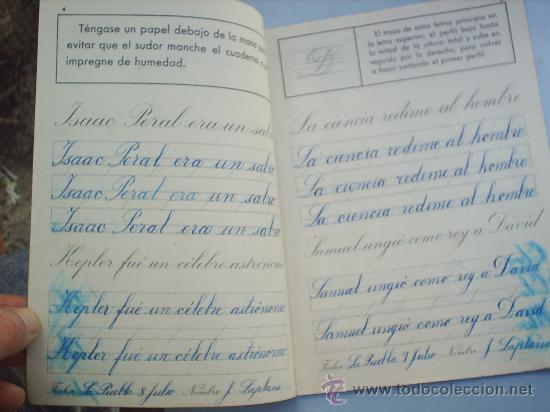 4
Téngase un papel debajo de la mano para
evitar que el sudor manche el cuaderno o
impregne de humedad.
Isaac Peral era un sabio
Isaac Peral era un sabio
Isaac Peral era un sabio
Isaac Peral era un sabio
Kepler fué un célebre astrónomo
Kepler fué un célebre astrónomo
Kepler fué un célebre astrónomo
Fecha La Puebla 8 Julio Nombre J. Laplana
El trazo de estas letras principia en
la letra superior; el perfil baja hasta
la mitad de la altura total y sube en
seguida por la derecha, para volver
a bajar cortando el primer perfil.
La ciencia redime al hombre
La ciencia redime al hombre
La ciencia redime al hombre
La ciencia redime al hombre
Samuel ungió como rey a David
Samuel ungió como rey a David
Samuel ungió como rey a David
Fecha La Puebla 9 Julio Nombre J. Laplana
todocoleccion.net